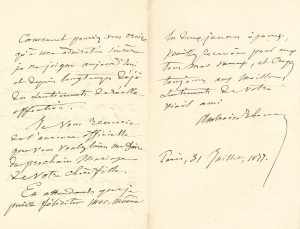 Comment pouvez vous croire
qu'à une admiration sincère
je ne joigne aujourd'hui
et depuis longtemps déjà
des sentiments de réelle
affection.
Je vous remercie
de l'annonce officielle
que vous voulez bien me faire
du prochain Mariage
de votre chère fille.
En attendant que je
puisse féliciter moi-même
les deux jeunes époux,
veuillez recevoir pour eux
tous mes vœux, et croyez
toujours aux meilleurs
sentiments de votre
vieil ami
Paris, 31 Juillet, 1877.